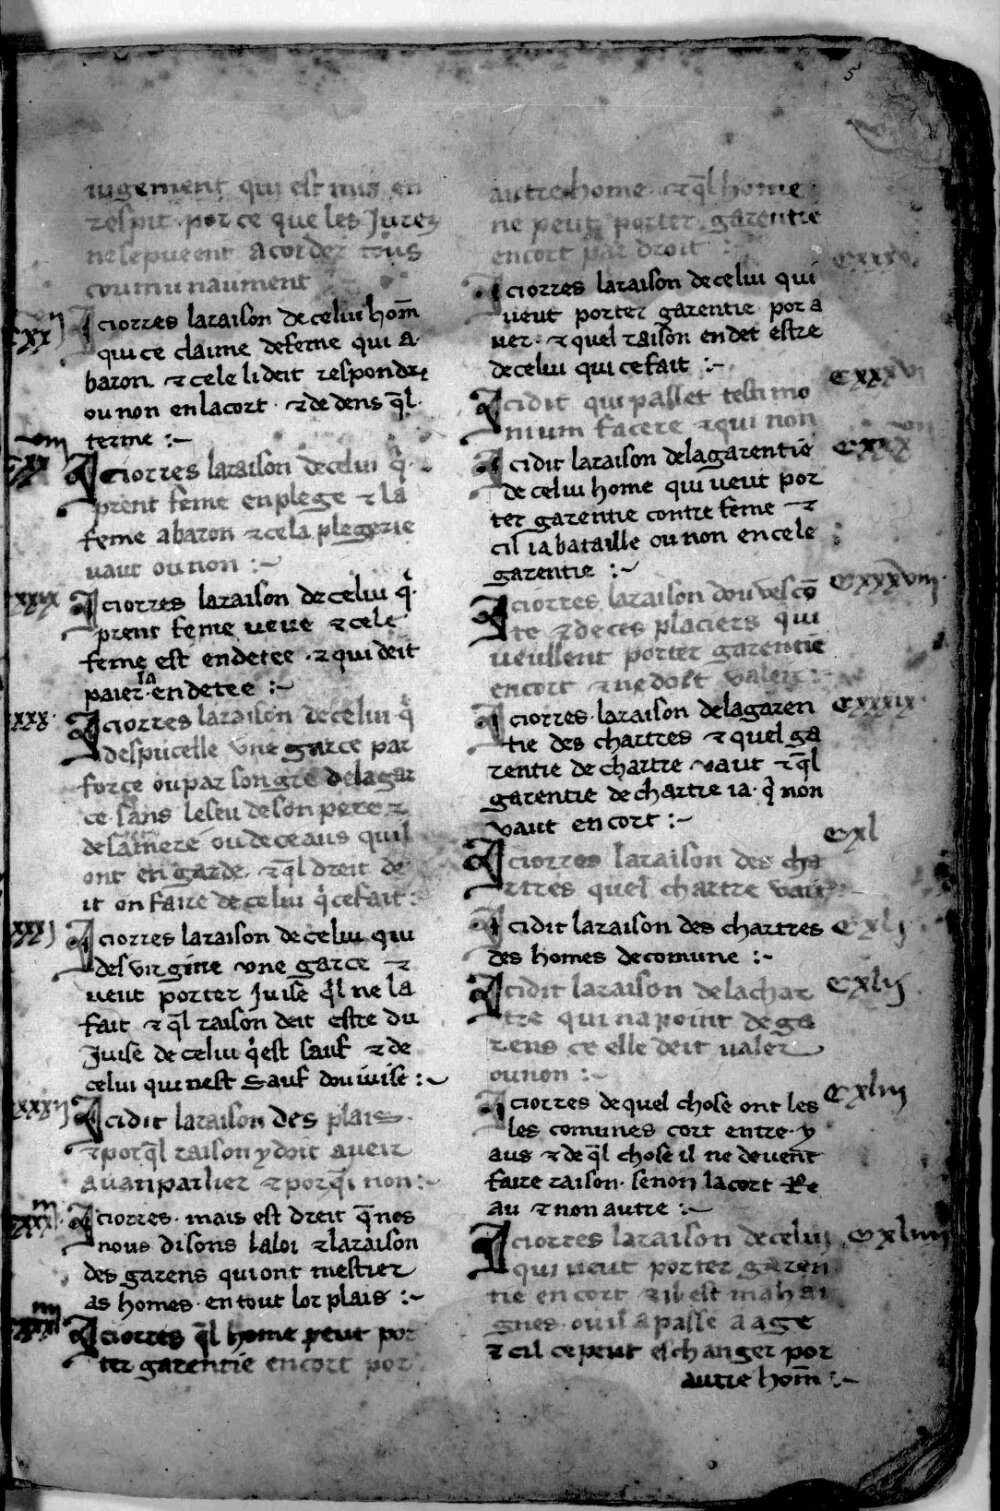 5
iugement qui est mis en
respit por ce que les Jurez
ne se pueent acorder tous
coumunaument
A ciorres la raison de celui hom̄
qui ce claime de feme qui a
baron ⁊ cele li deit respondre
ou non en la cort ⁊ de dens q̄l
terme :~
A ciorres la raison de celui q̇
prent feme en plege ⁊ la
feme a baron ⁊ ce la plegerie
vaut ou non :~
cxxix A ciorres la raison de celui q̇
prent feme veve ⁊ cele
feme est endetee ⁊ qui deit
paier la endetee :~
cxxx A ciorres la raison de celui q̇
despucelle une garce par
force ou par son gre de la gar
ce sans le seu de son pere ⁊
de sa mere ou de ceaus qui l
ont en garde ⁊ q̄l dreit de
it on faire de celui q̇ ce fait :
cxxxj A ciorres la raison de celui qui
desvirgine une garce ⁊
veut porter Juise q̇l ne la
fait ⁊ q̄l raison deit estre du
Juise de celui q̇ est sauf ⁊ de
celui qui nest sauf dou iuise :~
cxxxij A ci dit la raison des plais
⁊ por q̄l raison y doit aveir
avanparlier ⁊ por q̄i non :~
A ciorres mais est dreit q̄ nos
nous disons la loi ⁊ la raison
des garens qui ont mestier
as homes en tout lor plais :~
A ciorres q̄l home peut por
ter garentie en cort por
autre home ⁊ q̄l home
ne peut porter garentie
en cort par droit :~
cxxxv A ciorres la raison de celui qui
veut porter garentie por a
ver ⁊ quel raison en det estre
de celui qui ce fait :~
cxxxvi A ci dit qui passet testimo
nium facere ⁊ qui non
cxxxvii A ci dit la raison de la garentie
de celui home qui veut por
ter garentie contre feme ⁊
cil i a bataille ou non en cele
garentie :~
cxxxviii A ciorres la raison dou vescō
te ⁊ de ces placiers qui
veullent porter garentie
en cort ⁊ ne doit valeir :~
cxxxix A ciorres la raison de la garen
tie des chartres ⁊ quel ga
rentie de chartre vaut ⁊ q̄l
garentie de chartre i a q̇ non
vaut en cort :~
cxl A ciorres la raison des cha
rtres quel chartre vaut
cxlj A ci dit la raison des chartres
des homes de comune :~
cxlij A ci dit la raison de la char
tre qui na point de ga
rens ce elle deit valer
ou non :~
cxliij A ciorres de quel chose ont les
les comunes cort entre y
aus ⁊ de q̄l chose il ne devent
faire raison se non la cort Re
au ⁊ non autre :~
cxliiij A ciorres la raison de celui
qui veut porter garen
tie en cort ⁊ il est mahai
gnes ou il a passe a age
⁊ cil ce peut eschanger por
autre hom̄ :~